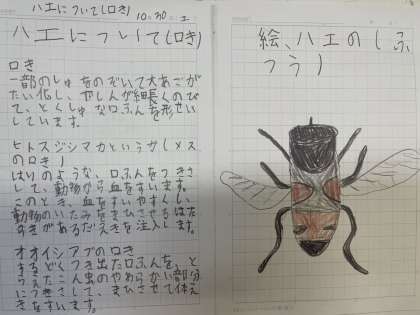 ハエについて(口き)
10-30-1
ハエについて(口き)
口き
一部のしゅをのぞいて大あごが
たい化し、やしんが細長くのび
て、とくしゅな口ふんを形せい
しています。
ヒトスジシマカというか(メス
の口き)
はりのような、口ふんをつきさ
して、動物から血をすいます。
このとき、血をすいやすくし、
動物のいたみをまひさせるはた
らきがあるだえきを注入します。
オオイシアブの口き
するどくつき出た口ふんを、と
らえたこん虫のやわらかい部分
につきさして、まひさせて体え
きをすいます。
絵、ハエの(ふ
つう)